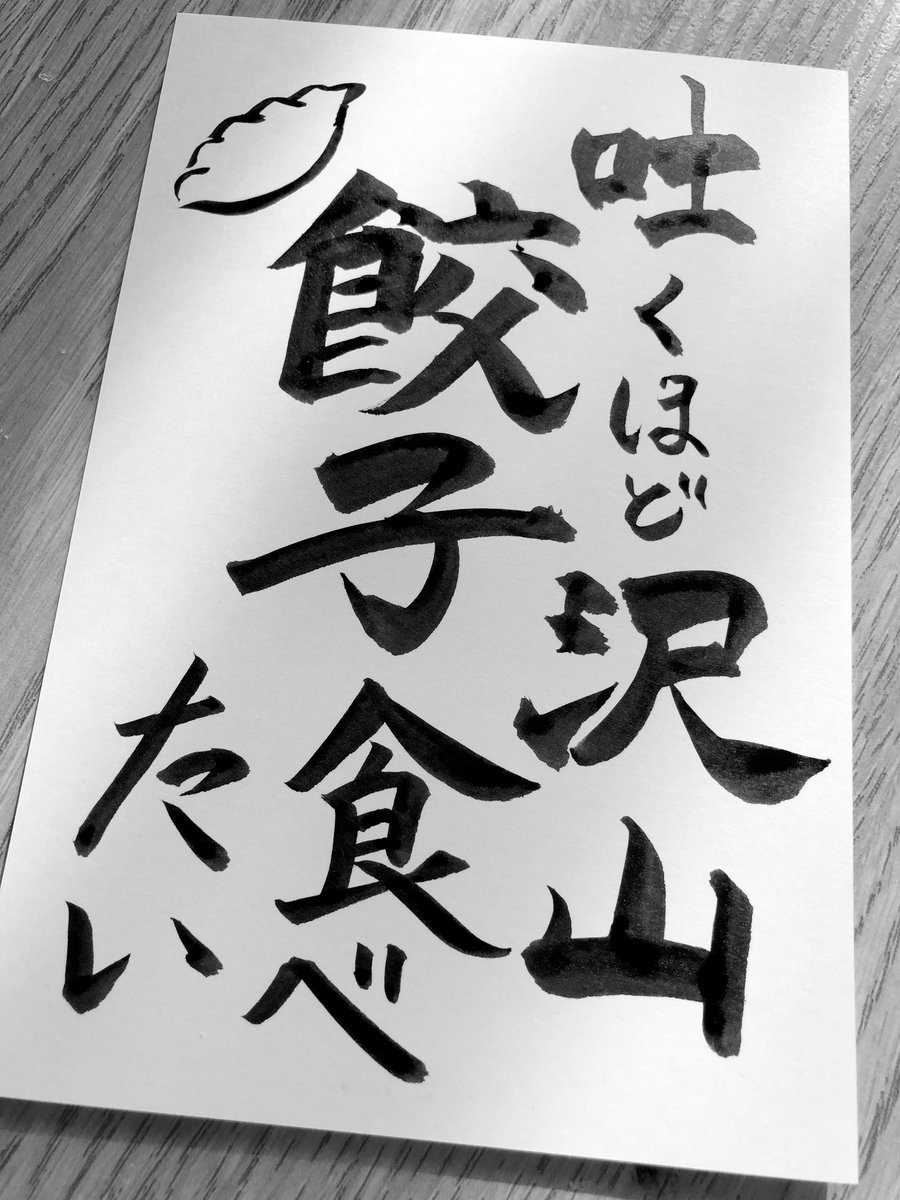 吐くほど沢山
餃子食べ
たい